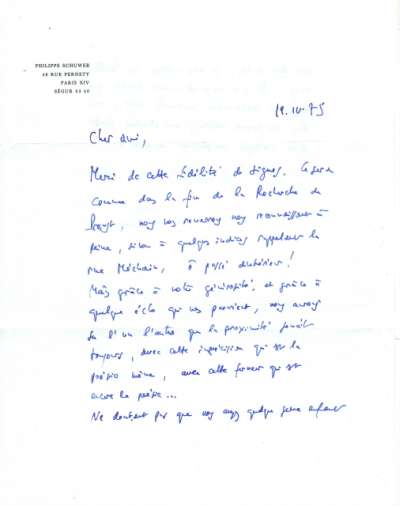 PHILIPPE SCHUWER
28 RUE PERNETY
PARIS XIV
SÉGUR 22 20
Cher ami,
Merci de cette fidélité de signes. Ce sera
comme dans la fin de la Recherche de
Proust, nous nous reverrons nous reconnaissant à
peine, sinon à quelques indices rappelant la
rue Méchain, ô passé
Mais grâce à votre générosité, et grâce à
quelque écho qui nous parvient, nous aurons
su l'un l'autre que la proximité
toujours, avec cette imprécision qui est la
poésie même, avec cette ferveur qui est
encore la poésie...
Ne doutant pas que vous ayez quelque